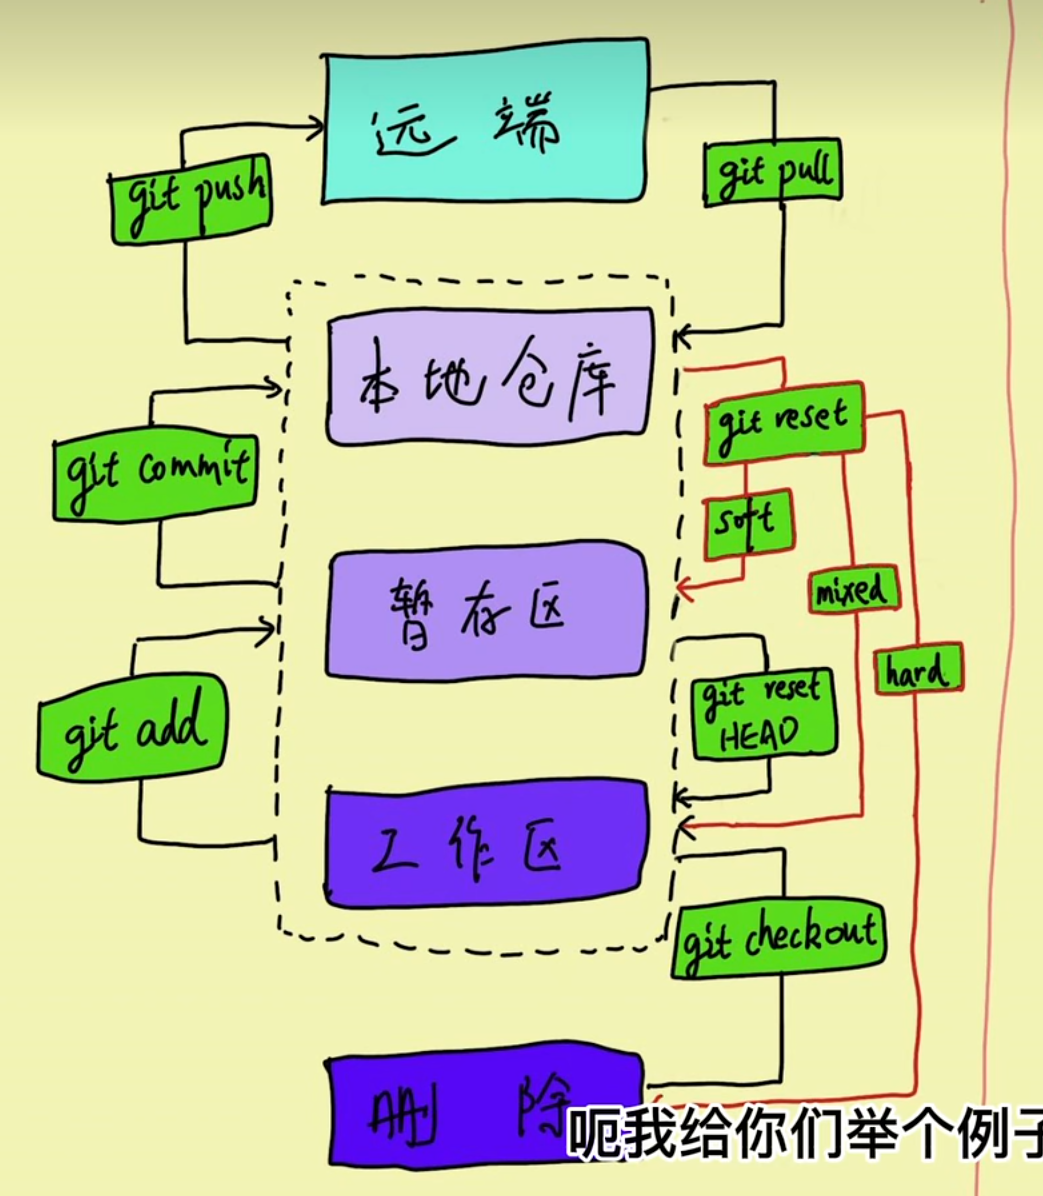 远端
git push
git pull
本地仓库
git commit
git reset
soft
mixed
hard
暂存区
git add
git reset
HEAD
工作区
git checkout
删除
呃我给你们举个例子